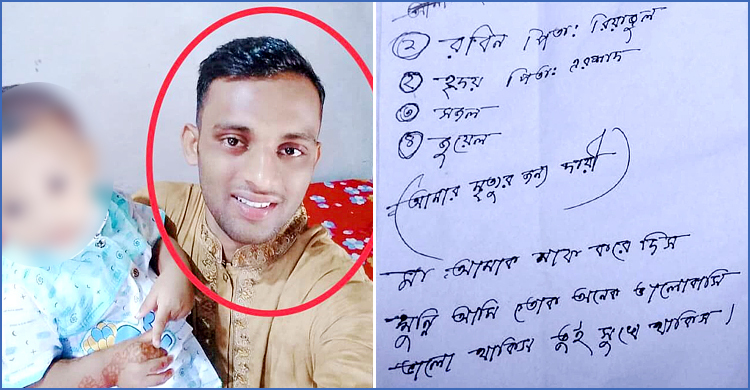 ① রবিন পিতা: রিয়াজুল
② হৃদয় পিতা: এরশাদ
③ সজল
④ জুয়েল
(আমার মৃত্যুর জন্য দায়ী)
মা আমাক মাফ করে দিস
মুন্নি আমি তোক অনেক ভালোবাসি
ভালো থাকিস তুই সুখে থাকিস।